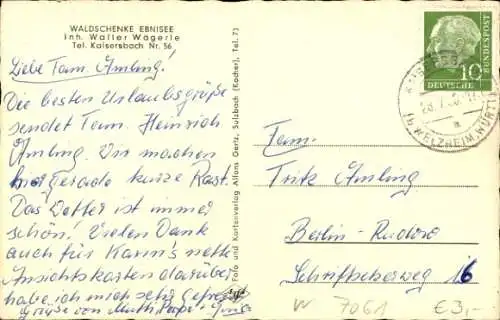 WALDSCHENKE EBNISEE
Inh. Walter Wägerle
Tel. Kaisersbach Nr. 56
Liebe Fam. Amling!
Die besten Urlaubsgrüße
sendet Fam. Heinrich
Amling. Wir machen
hier gerade kurze Rast.
Das Wetter ist immer
schön! Vielen Dank
auch für Karin's nette
Ansichtskarten darüber
habe ich mich sehr gefreut
Grüße von Mutti, Papi +
Foto und Kartenverlag Alfons Gertz, Sulzbach (Kocher), Tel. 73
DEUTSCHE
BUNDESPOST
10
(b. WELZHEIM, WÜRTT)
a
Fam.
Fritz Amling
Berlin - Rudow
Schriftsetzerweg 16
W 7061
€3,-